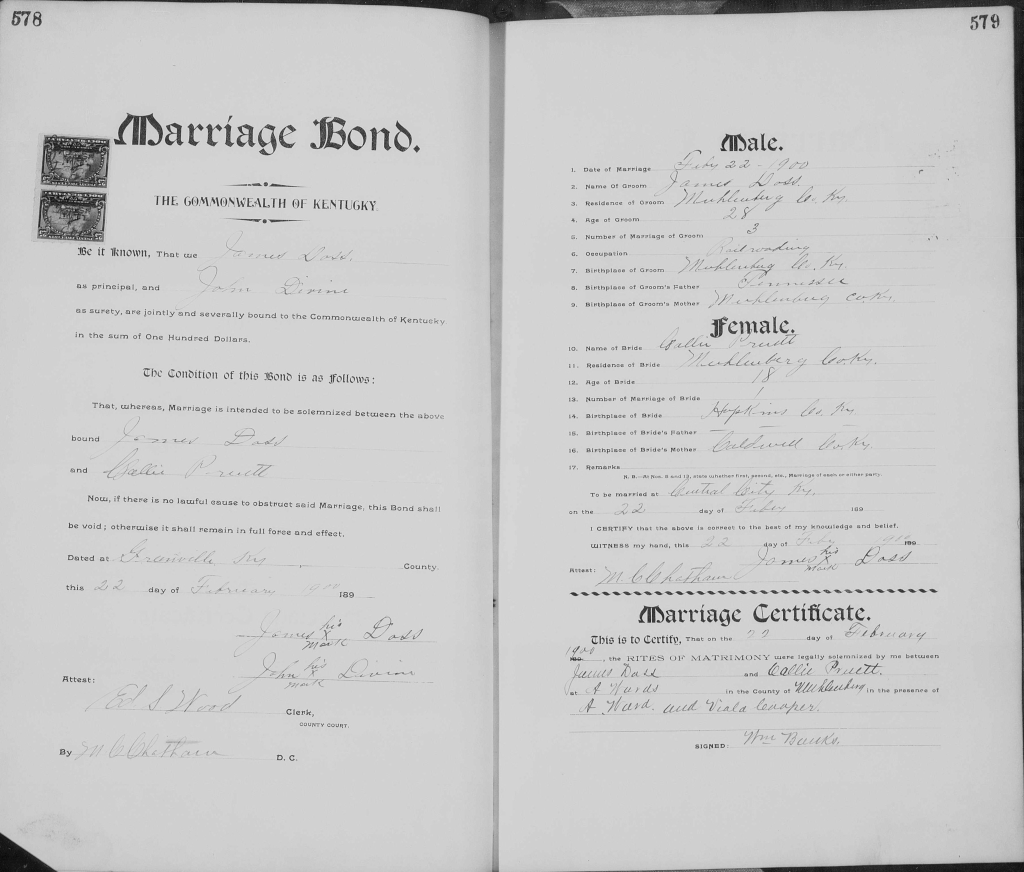 578
Marriage Bond.
THE COMMONWEALTH OF KENTUCKY.
Be it Known, That we James Doss.
as principal, and John Divine
as surety, are jointly and severally bound to the Commonwealth of Kentucky
in the sum of One Hundred Dollars.
The Condition of this Bond is as Follows:
That, whereas, Marriage is intended to be solemnized between the above
bound James Doss
and Callie Pruett
Now, if there is no lawful cause to obstruct said Marriage, this Bond shall
be void; otherwise it shall remain in full force and effect.
Dated at Greenville Ky, County.
this 22 day of February 1900 189
James his X mark Doss
John his X mark Divine
Attest:
Ed S Wood Clerk,
COUNTY COURT.
By M C Chatham D. C.
579
Male.
1. Date of Marriage Feby 22 - 1900
2. Name Of Groom James Doss.
3. Residence of Groom Muhlenburg Co. Ky.
4. Age of Groom 28
5. Number of Marriage of Groom 3
6. Occupation Railroading
7. Birthplace of Groom Muhlenburg Co. Ky.
8. Birthplace of Groom's Father Tennessee
9. Birthplace of Groom's Mother Muhlenburg Co Ky.
Female.
10. Name of Bride Callie Pruett
11. Residence of Bride Muhlenburg Co Ky.
12. Age of Bride 18
13. Number of Marriage of Bride 1
14. Birthplace of Bride Hopkins Co. Ky
15. Birthplace of Bride's Father — —
16. Birthplace of Bride's Mother Caldwell Co. Ky
17. Remarks
N. B.—At Nos. 5 and 13, state whether first, second, etc., Marriage of each or either party.
To be married at Central City Ky.
on the 22 day of Feby 189
I CERTIFY that the above is correct to the best of my knowledge and belief.
WITNESS my hand, this 22 day of Feby 1900 189
Attest: M C Chatham James his X mark Doss
Marriage Certificate.
This is to Certify, That on the 22 day of February
1900 189 , the RITES OF MATRIMONY were legally solemnized by me between
James Doss and Callie Pruett.
at A Wards in the County of Muhlenberg in the presence of
A Ward. and Viola Cooper.
SIGNED: Wm